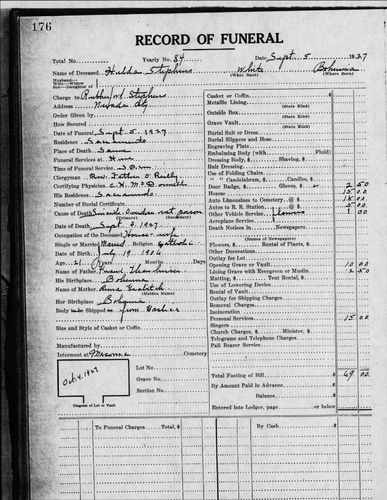 176
RECORD OF FUNERAL
Total No. Yearly No. 84 Date Sept. 5 1927
Name of Deceased Hulda Stephens White Bohemia
(What Race) (Where Born)
Husband—
Wife—Widow
Son—Daughter of
Charge to Stephens
Address Nevada City
Order Given by
How Secured
Date of Funeral Sept. 5 1927
Residence Sacramento
Place of Death Same
Funeral Services at
Time of Service
Clergyman Rev. Father O. Reilly
Certifying Physician
His Residence Sacramento
Number of Burial Certificate
Cause of Death Suicide
(Primary) (Secondary)
Date of Death Sept. 2. 1927
Occupation of the Deceased House wife
Single or Married Married Religion Catholic
Date of Birth July 19 1906
Age 21 Years Months Days
Name of Father
His Birthplace Bohemia
Name of Mother Anna
(Maiden Name)
Her Birthplace Bohemia
Body to be Shipped to from
Size and Style of Casket or Coffin
Manufactured by
Interment at Masonic Cemetery
Oct. 4. 1927
Lot No.
Grave No.
Section No.
Diagram of Lot or Vault
Casket or Coffin
Metallic Lining
(State Kind)
Outside Box
(State Kind)
Grave Vault
(State Kind)
Burial Suit or Dress
Burial Slippers and Hose
Engraving Plate
Embalming Body (with Fluid)
Dressing Body, Shaving,
Hair Dressing
Use of Folding Chairs
" Candelabrum, Candles,
Door Badge, Gloves, 2 50
Hearse 15 00
Auto Limousines to Cemetery 18 00
Autos to R. R. Station 5 00
Other Vehicle Service flowers 1 00
Aeroplane Service
Death Notices in Newspapers
(Names of Newspapers)
Flowers, Rental of Plants
Other Decorations
Outlay for Lot
Opening Grave or Vault 10 00
Lining Grave with Evergreen or Muslin 2 50
Matting, Tent Rental,
Use of Lowering Device
Rental of Vault
Outlay for Shipping Charges
Removal Charges
Incineration
Personal Services 15 00
Singers
Church Charges, Minister,
Telegrams and Telephone Charges
Pall Bearer Service
Total Footing of Bill $ 69 00
By Amount Paid in Advance
Balance
Entered into Ledger, page or below
To Funeral Charges Total, $